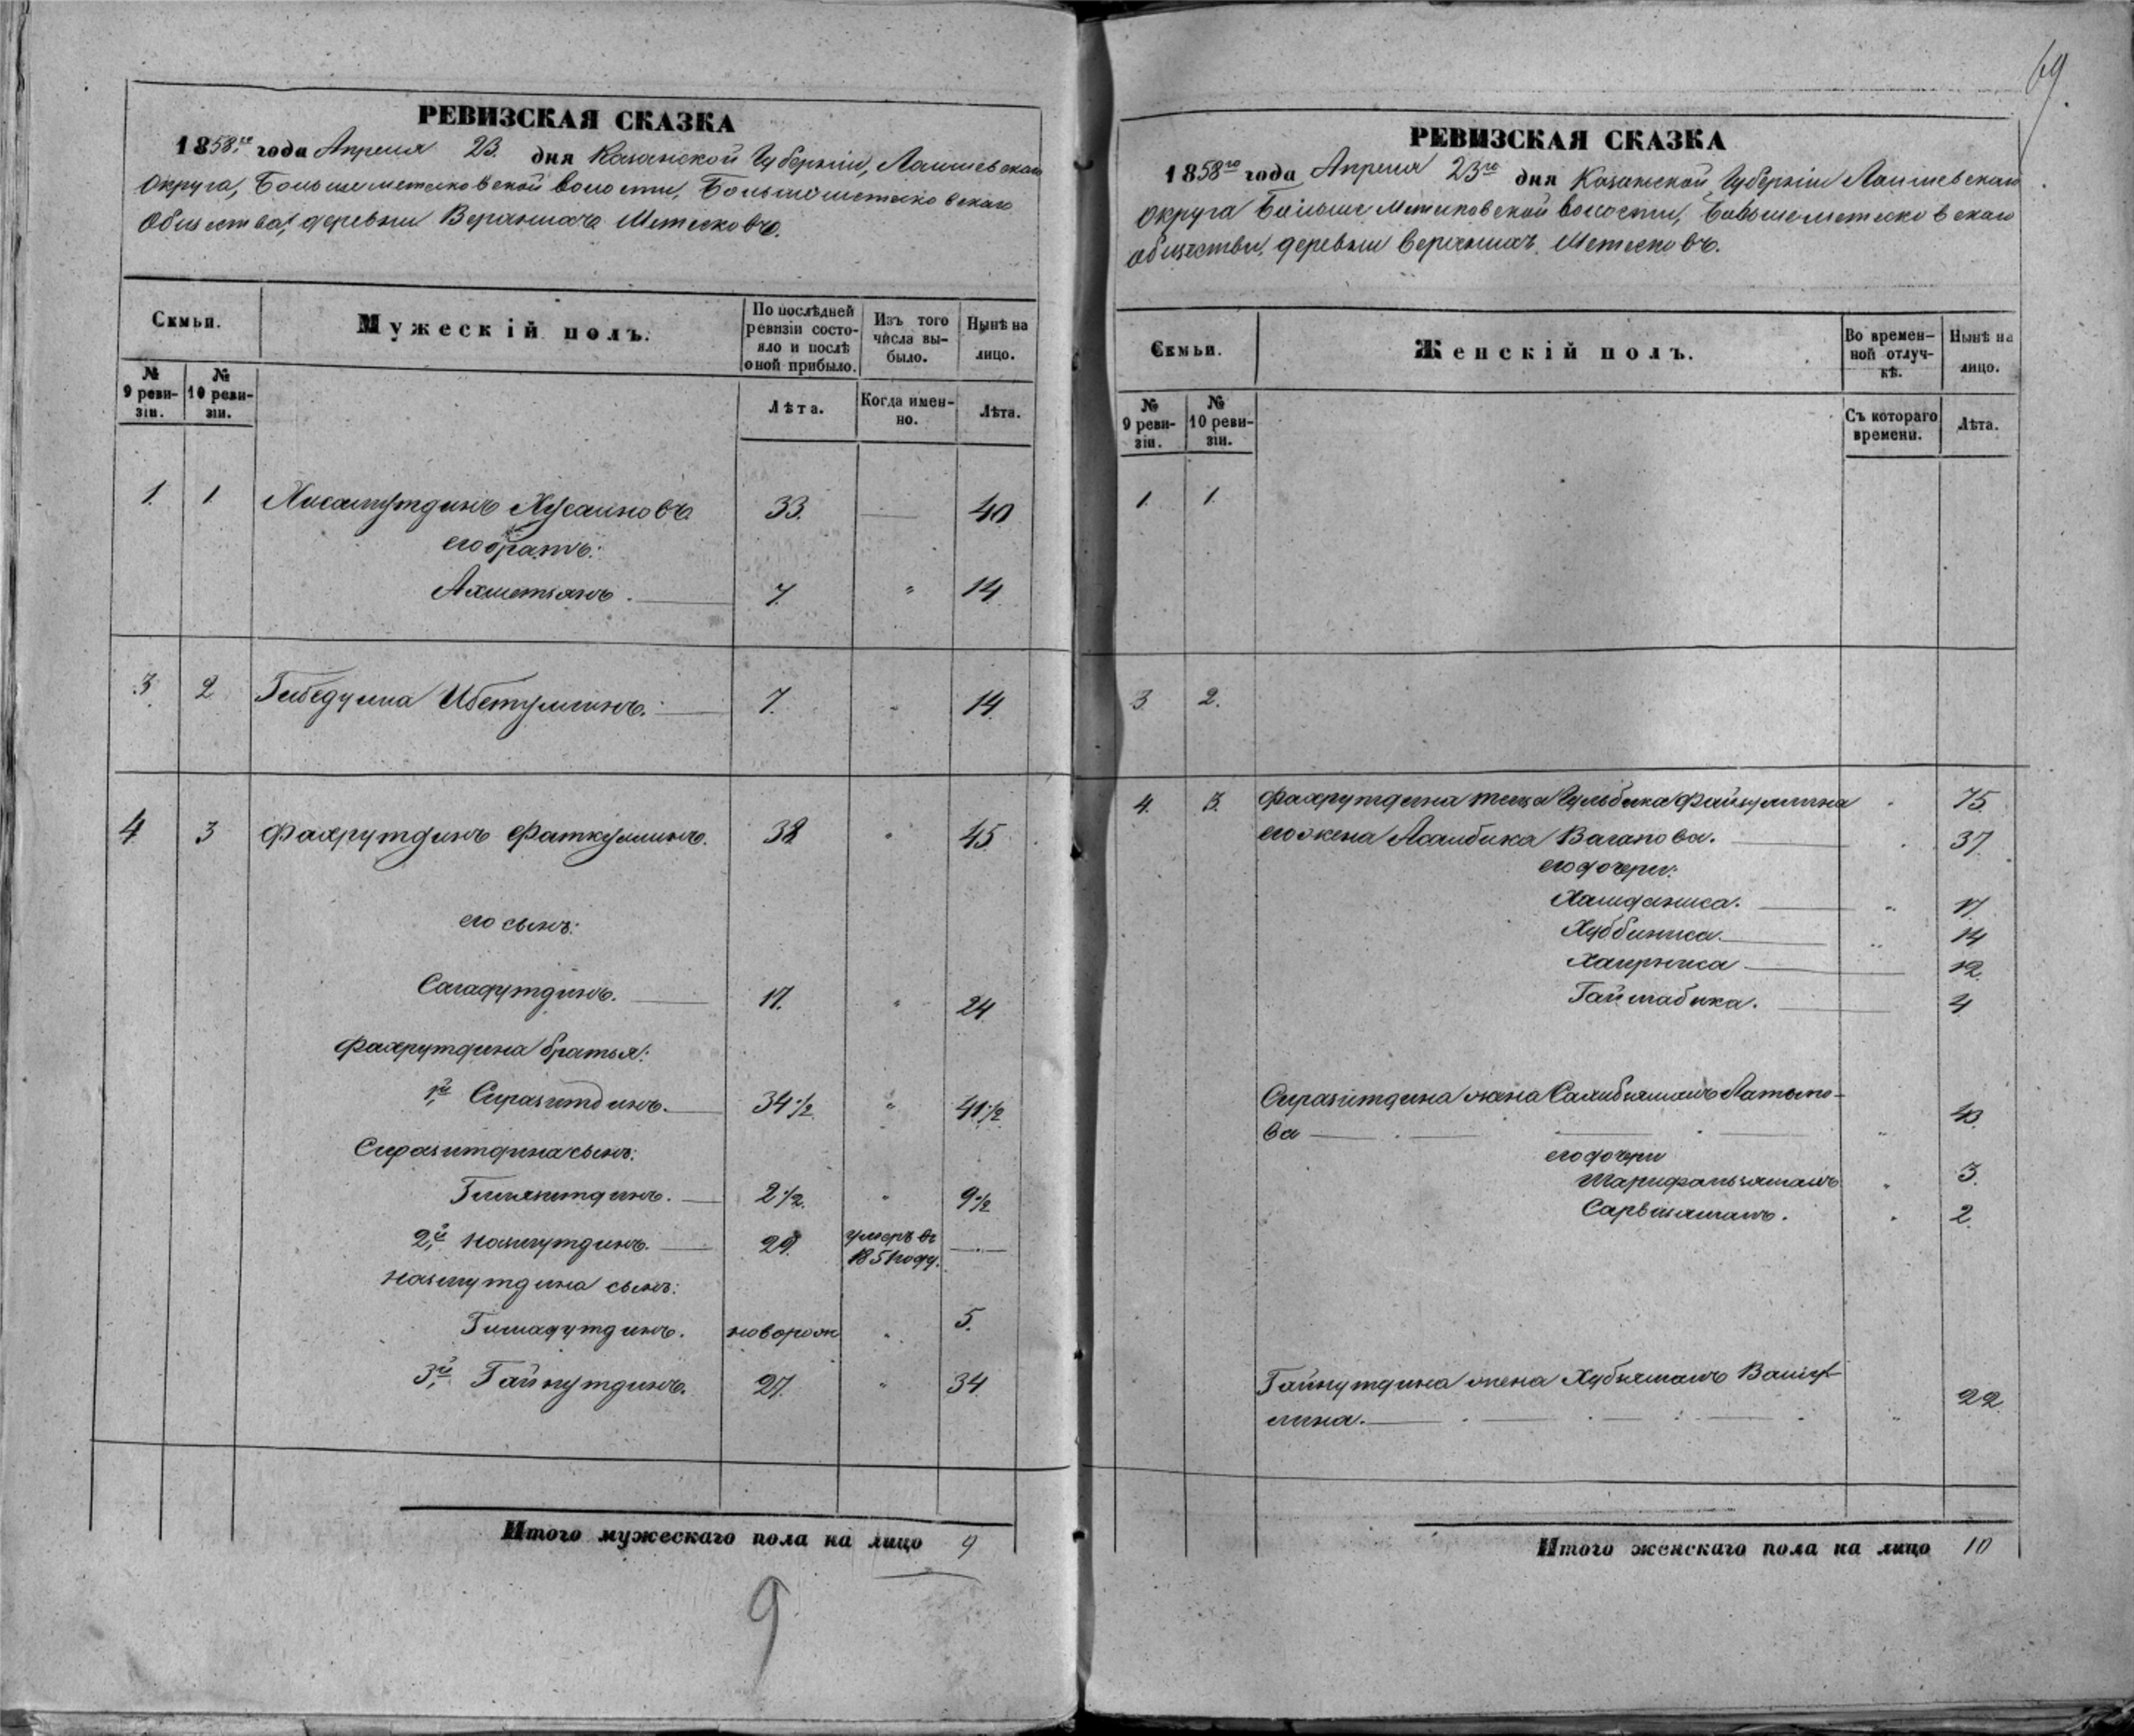 РЕВИЗСКАЯ СКАЗКА
1858го года Апреля 23. дня Казанской Губернiи, Лаишевскаго
Округа, Большеметесковской волости, Большеметесковскаго
Общества, деревни Верхнихъ Метесковъ.
Семьи.
Мужескій полъ.
По послѣдней ревизіи состояло и послѣ оной прибыло.
Изъ того числа выбыло.
Нынѣ на лицо.
№ 9 ревизіи.
№ 10 ревизіи.
Лѣта.
Когда именно.
Лѣта.
1. 1 Хисамутдинъ Хусаиновъ 33. — 40
его братъ:
Ахметзянъ. — 7. " 14
3 2 Гибедулла Ибетуллинъ. — 7. " 14.
4 3 Фахрутдинъ Фаткуллинъ. 38 " 45
его сынъ:
Сагадутдинъ. — 17. " 24
Фахрутдина братья:
1й Сиразитдинъ. — 34½ " 41½
Сиразитдина сынъ:
Гилязитдинъ. — 2½ " 9½
2й Назмутдинъ. — 29. умеръ въ 1851 году. —
Назмутдина сынъ:
Гимадутдинъ. новорож " 5.
3й Гайнутдинъ. 27. " 34.
Итого мужескаго пола на лицо 9
9
69.
РЕВИЗСКАЯ СКАЗКА
1858го года Апреля 23го дня Казанской Губернiи Лаишевскаго
Округа Большеметесковской волости, Большеметесковскаго
общества, деревни Верхнихъ Метесковъ.
Семьи.
Женскій полъ.
Во временной отлучкѣ.
Нынѣ на лицо.
№ 9 ревизіи.
№ 10 ревизіи.
Съ котораго времени.
Лѣта.
1. 1.
3 2.
4. 3. Фахрутдина теща Гульбика Файзуллина " 75.
его жена Асылбика Вагапова. — " 37.
его дочери:
Хамданиса. — " 17.
Хуббиниса. — " 14
Хаерниса — 12.
Гаймабика. — 4
Сиразитдина жена Салибзямалъ Латыпо-
ва — " 40.
его дочери
Шарифользямалъ " 3.
Сарвизямалъ. " 2.
Гайнутдина жена Хубзямалъ Валиу-
лина. — " 22.
Итого женскаго пола на лицо 10